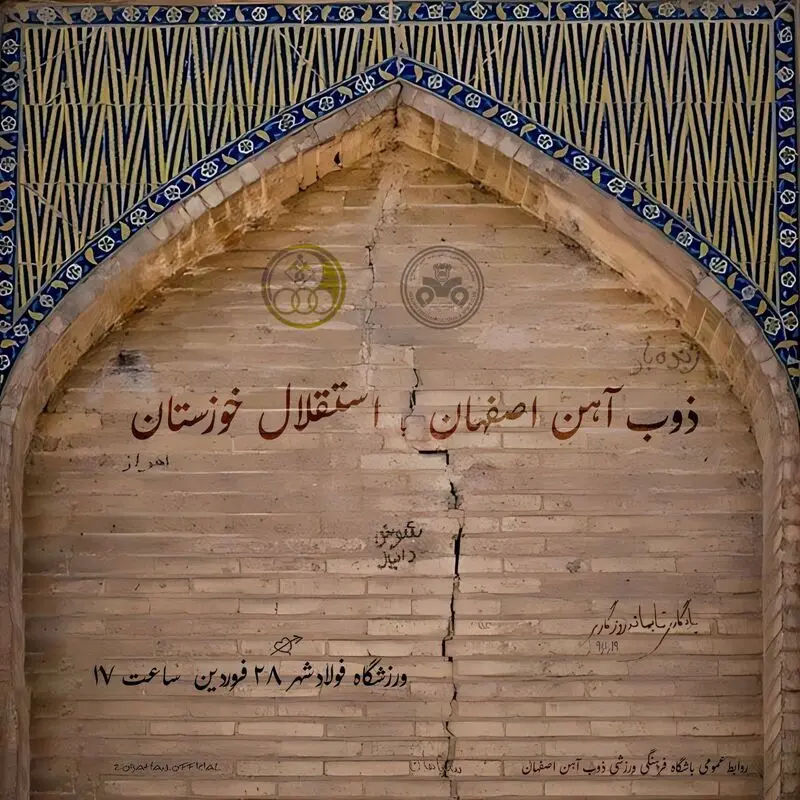 زنده باد
ذوب آهن اصفهان , استقلال خوزستان
اهواز
دانیال
یادگاری تا بماند روزگاری
ورزشگاه فولادشهر ۲۸ فروردین ساعت ۱۷
روابط عمومی باشگاه فرهنگی ورزشی ذوب آهن اصفهان
ZOBAHAN.OFFICIAL